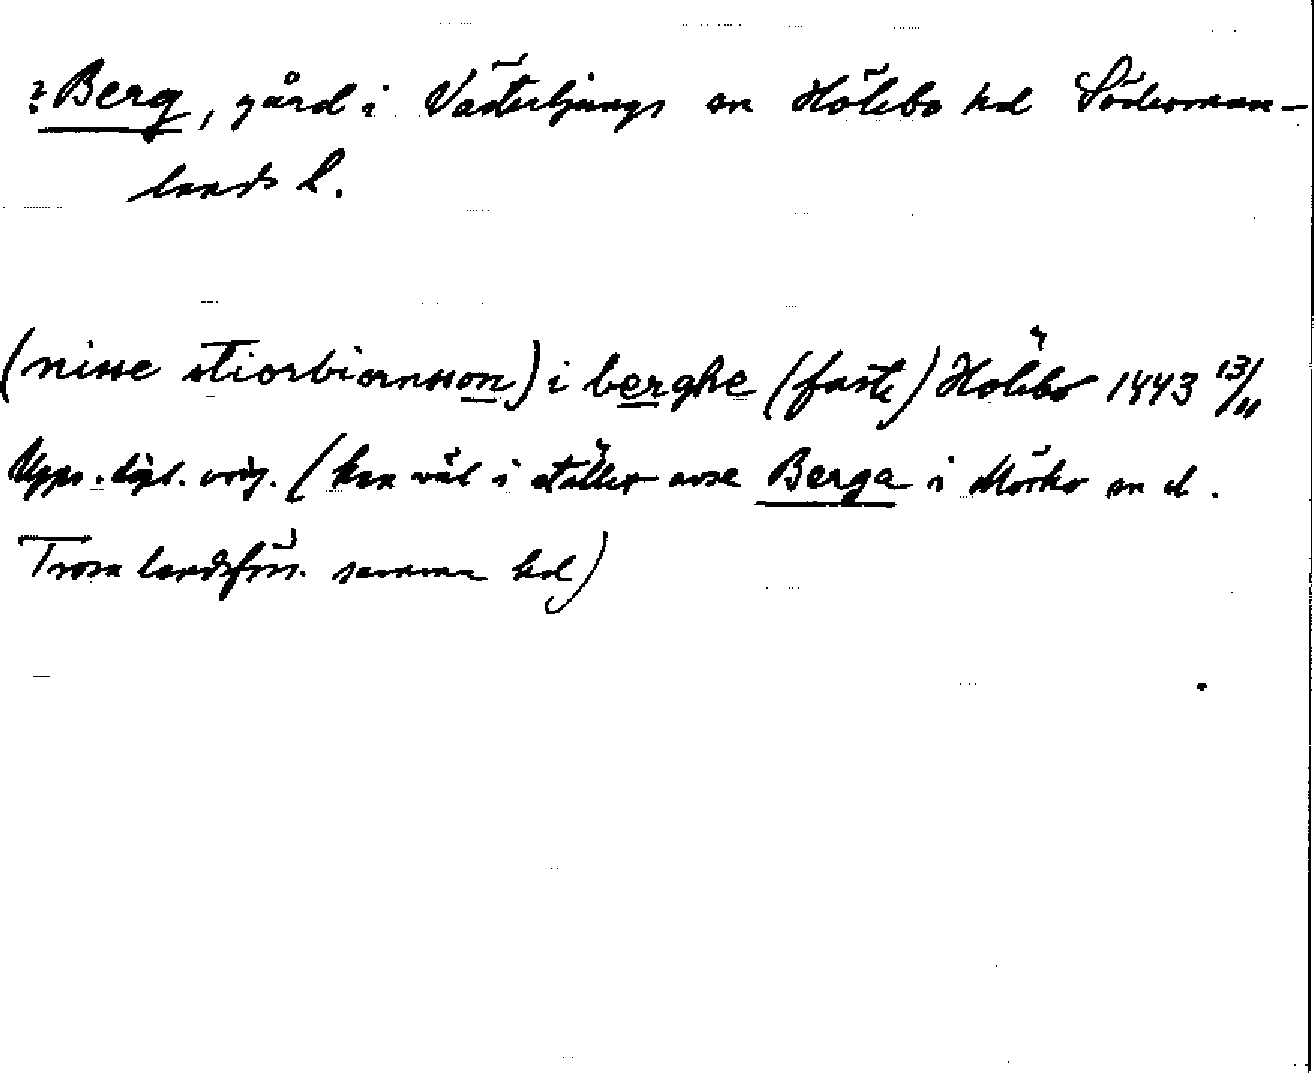 ?Berg, gård i Västerljungs sn Hölebo hd Söderman-
lands l.
(nisse stiorbiornsson) i berghe (faste) Hölebo 1443 13/11
Upps. dipl. orig. (kan väl i stället avse Berga i Mörkö sn d.
Trosa landsförs. samma hd)